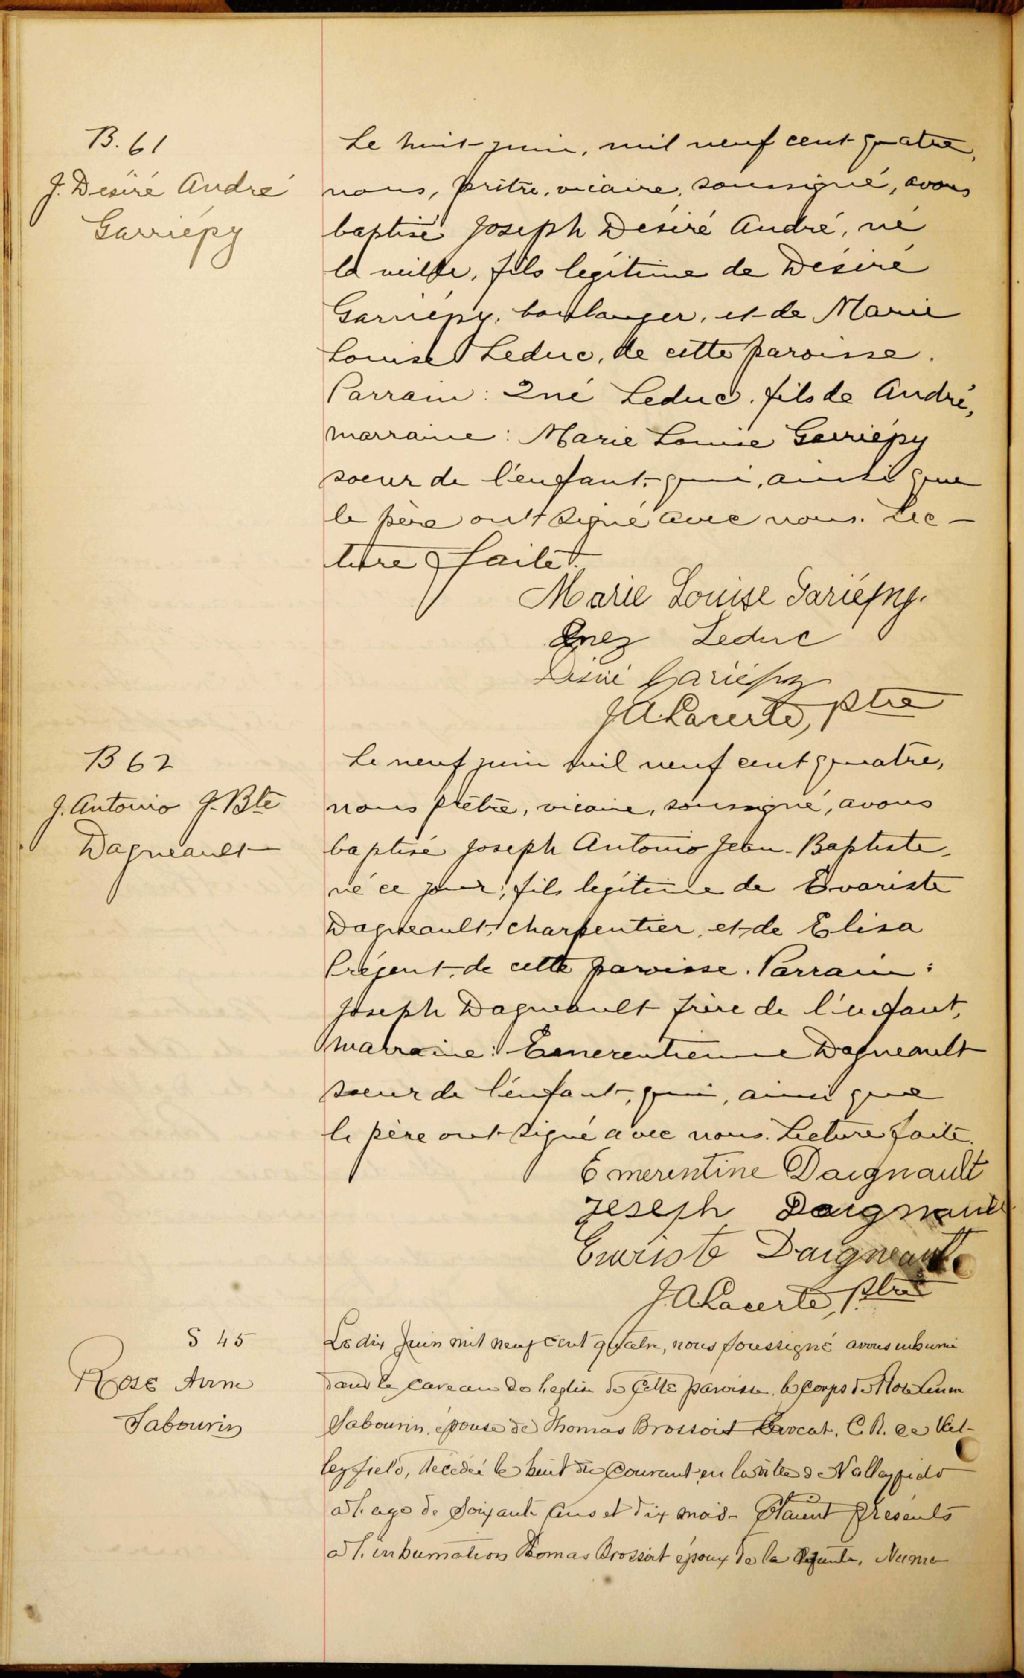 B. 61
J. Desiré André
Garriépy
Le huit juin, mil neuf cent quatre,
nous, prêtre, vicaire, soussigné, avons
baptisé Joseph Désiré André, né
la veille, fils légitime de Désiré
Garriépy, boulanger, et de Marie
Louise Leduc, de cette paroisse.
Parrain: Iné Leduc, fils de André,
marraine: Marie Louise Garriépy
soeur de l'enfant, qui, ainsi que
le père ont signé avec nous. Lec-
ture faite.
Marie Louise Gariépy.
Inez Leduc
Désiré Gariépy
J.A. Lacerte, Ptre
B 62
J. Antonio J. Bte
Dagneault
Le neuf juin mil neuf cent quatre,
nous prêtre, vicaire, soussigné, avons
baptisé Joseph Antonio Jean-Baptiste,
né ce jour, fils légitime de Evariste
Dagneault, charpentier, et de Elisa
Prégent, de cette paroisse. Parrain:
Joseph Dagneault frère de l'enfant,
marraine: Emerentienne Dagneault
soeur de l'enfant, qui, ainsi que
le père ont signé avec nous. Lecture faite.
Emerentine Daignault
Joseph Daignault
Evariste Daigneault
J.A. Lacerte, Ptre
S 45
Rose Anne
Sabourin
Le dix Juin mil neuf cent quatre, nous soussigné avons inhumé
dans le caveau de l'eglise de cette paroisse, le corps de Rose
Sabourin, épouse de Thomas Brossoit Avocat, C.R. de Val-
leyfield, décédée le huit du courant en la ville de Valleyfield
a l'age de soixante ans et dix mois - Etaient présents
a l'inhumation Thomas Brossoit époux de la défunte,